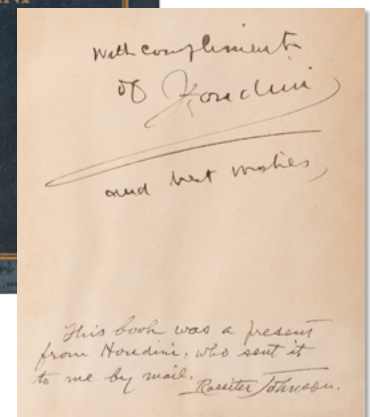 With compliments
of Houdini
and best wishes,
This book was a present
from Houdini, who sent it
to me by mail.
Rossiter Johnson.